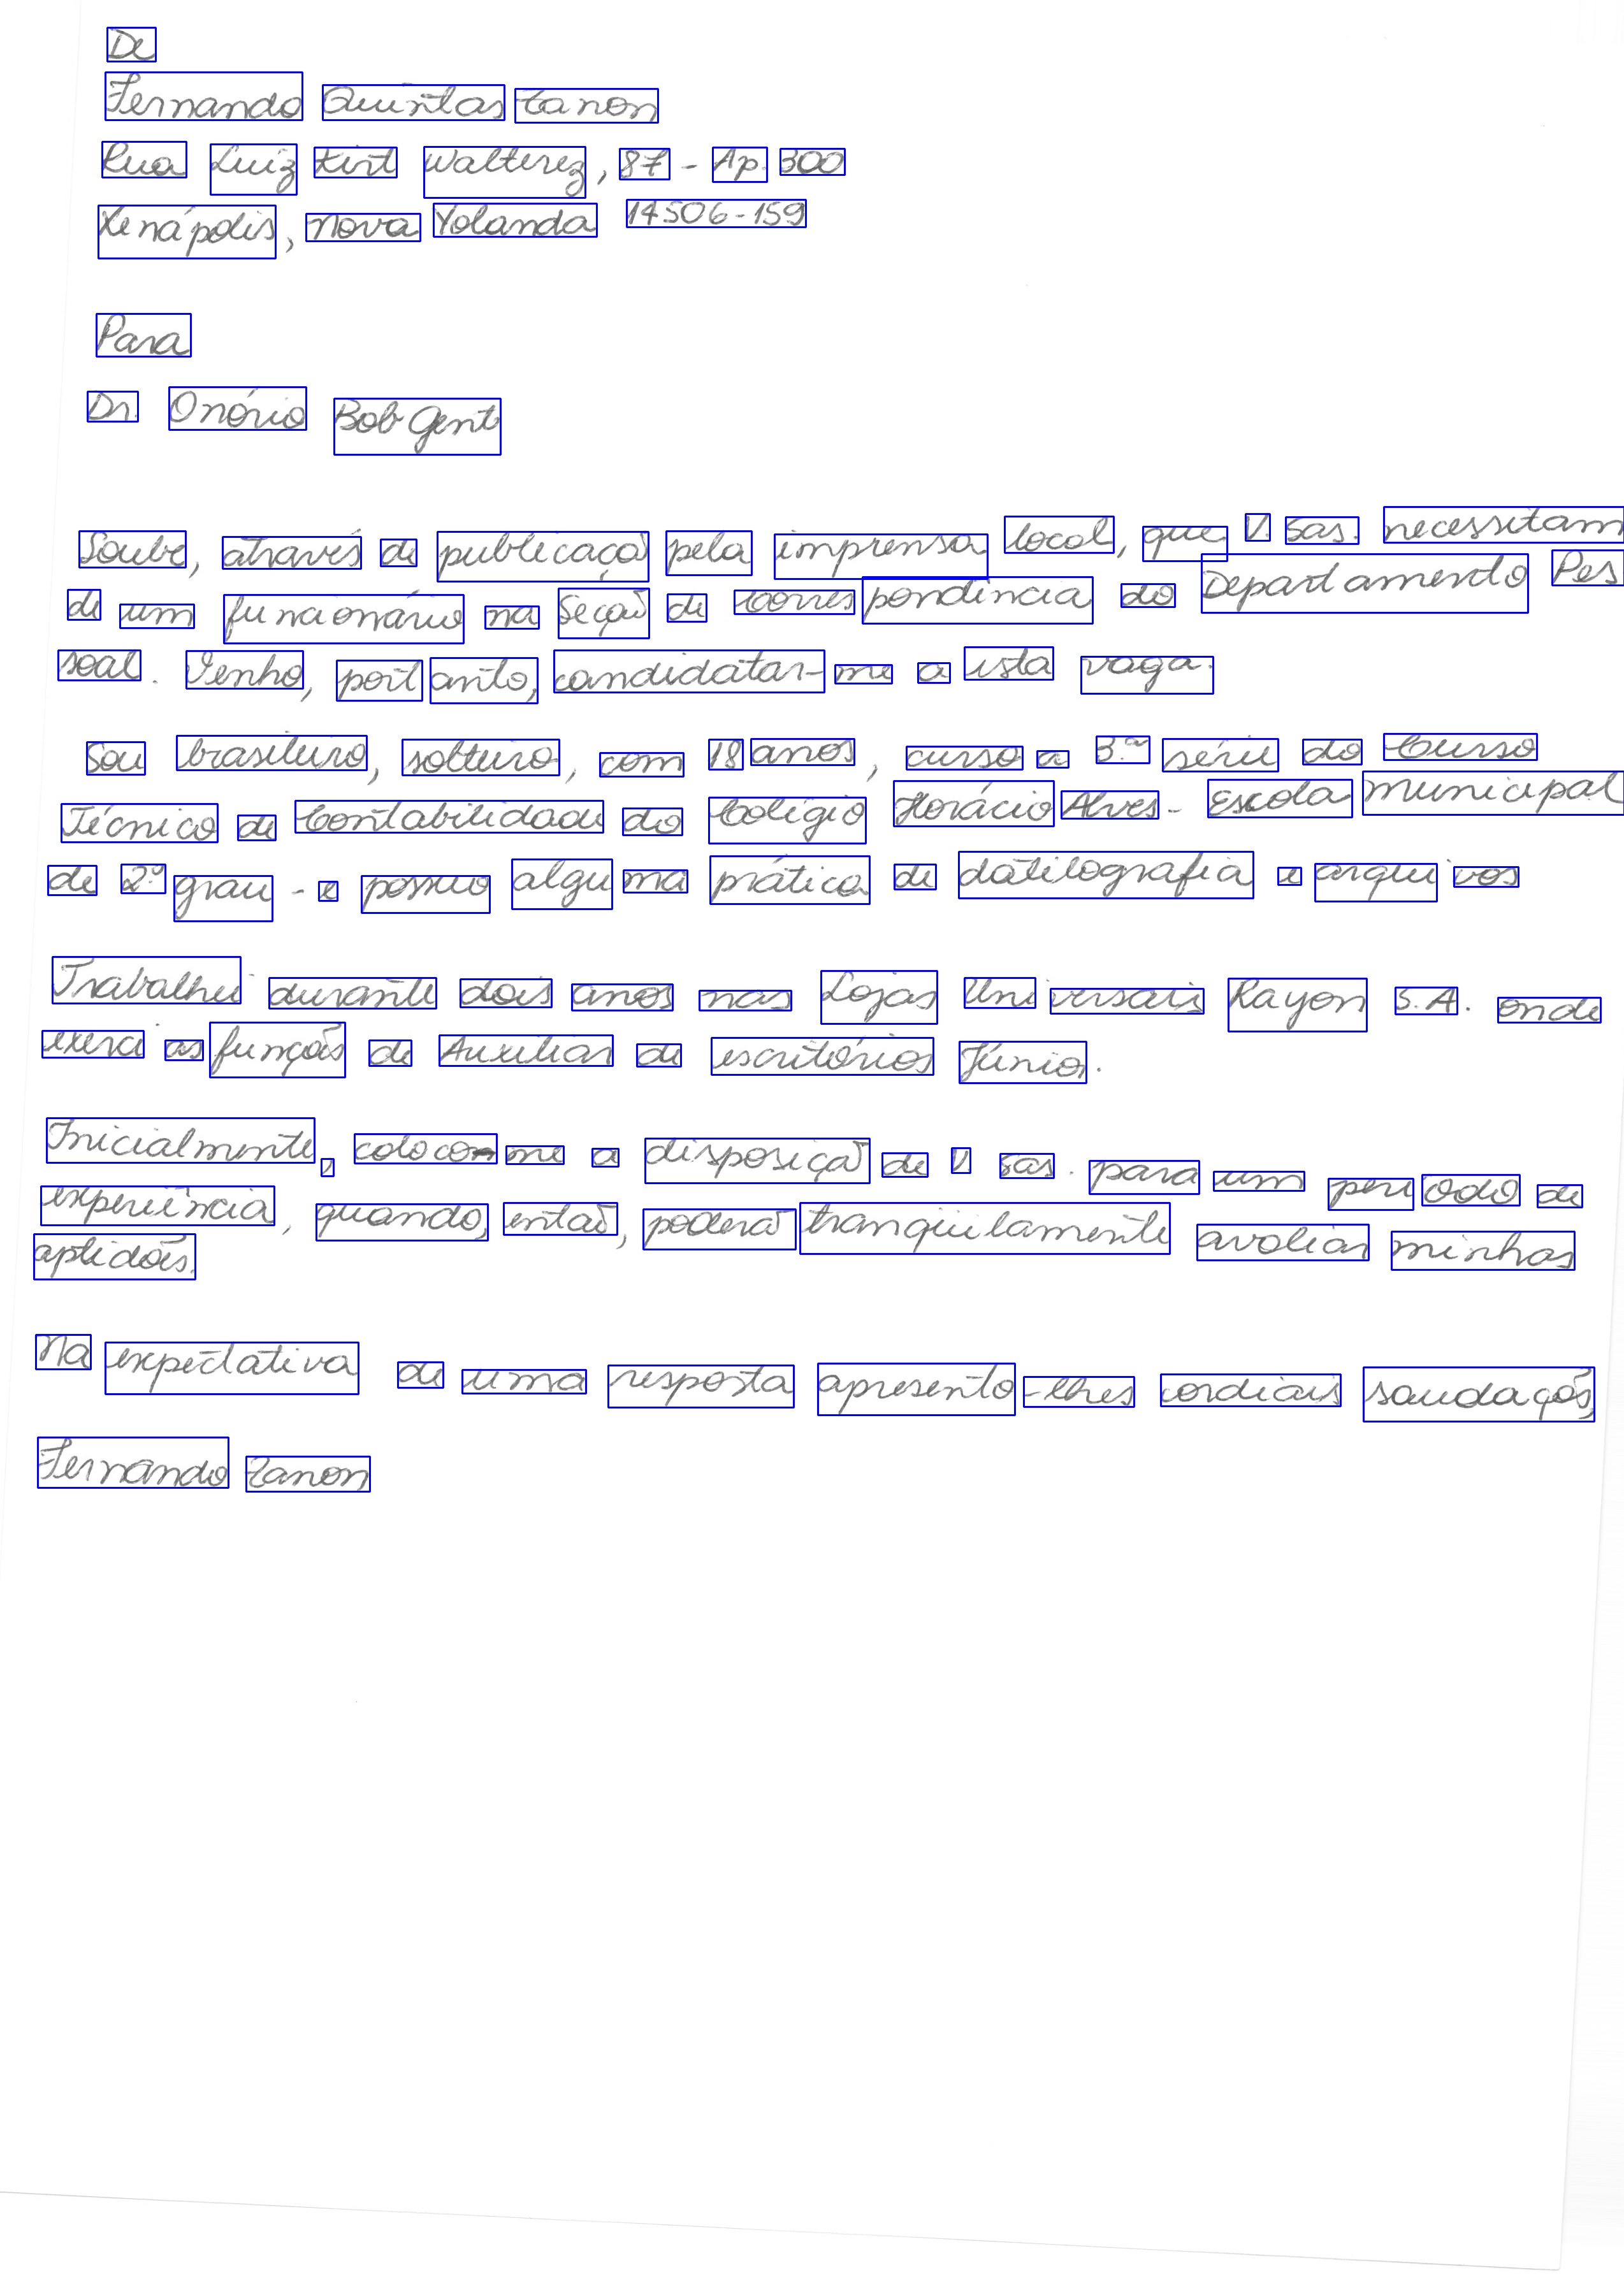 De
Fernando Quintas Zanon
Rua Luiz Kirt Walterez, 87 - Ap. 300
Xenápolis, Nova Yolanda 14506-159
Para
Dr. Onório Bob Gent
Soube, através de publicação pela imprensa local, que V. Sas. necessitam
de um funcionário na Seção de Correspondência do Departamento Pes
soal. Venho, portanto, candidatar-me a esta vaga.
Sou brasileiro, solteiro, com 18 anos, curso a 3.ª série do Curso
Técnico de Contabilidade do Colégio Horácio Alves - Escola Municipal
de 2.º grau - e possuo alguma prática de datilografia e arquivos
Trabalhei durante dois anos nas Lojas Universais Rayon S.A. onde
exerci as funções de Auxiliar de escritórios Júnior.
Inicialmente, coloco-me a disposição de V Sas. para um período de
experiência, quando, então, poderão tranqüilamente avaliar minhas
aptidões.
Na expectativa de uma resposta apresento-lhes cordiais saudações,
Fernando Zanon